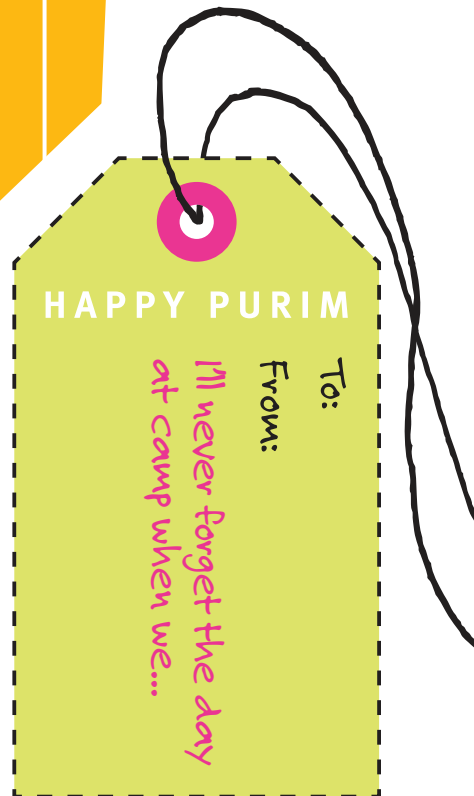 HAPPY PURIM
To:
From:
I'll never forget the day
at camp when we...